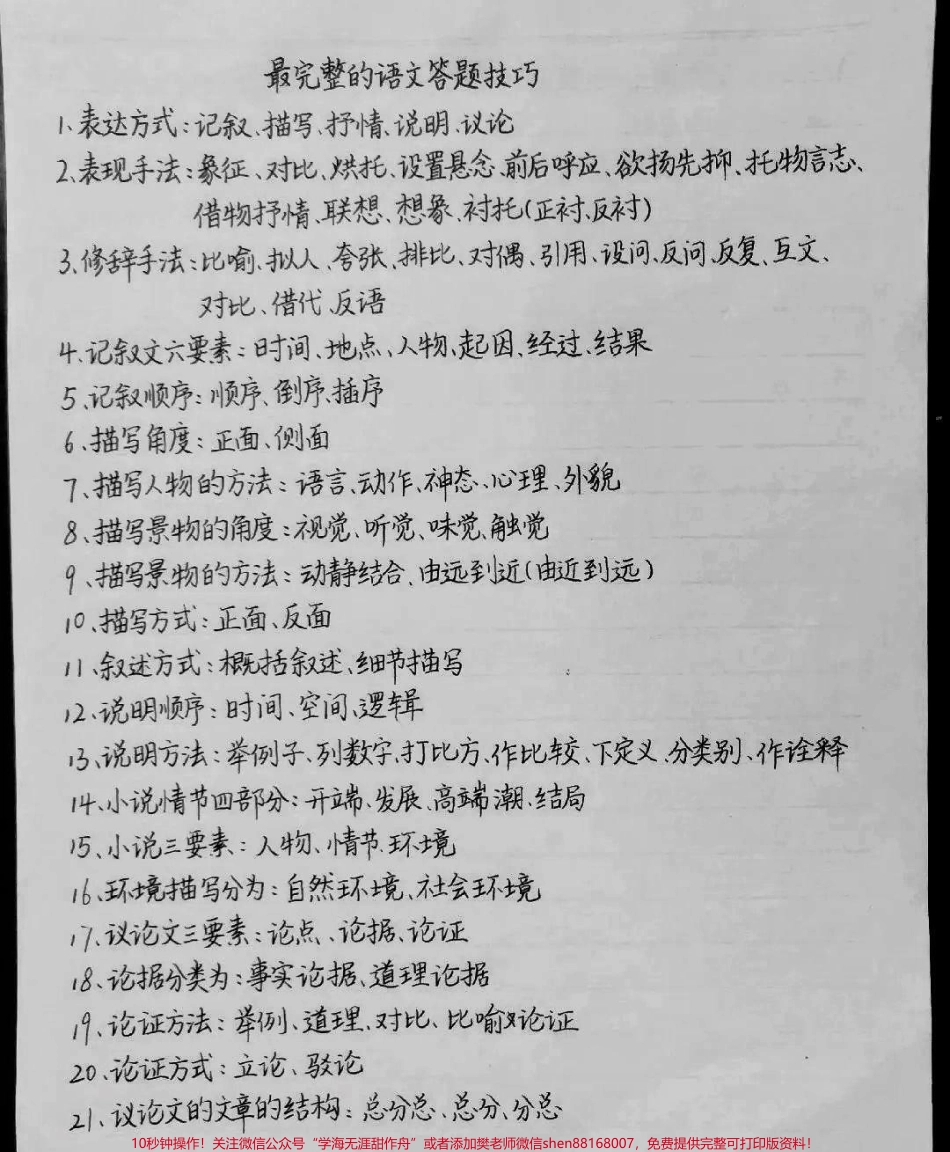 最完整的语文答题技巧
1、表达方式：记叙、描写、抒情、说明、议论
2、表现手法：象征、对比、烘托、设置悬念、前后呼应、欲扬先抑、托物言志、
借物抒情、联想、想象、衬托(正衬、反衬)
3、修辞手法：比喻、拟人、夸张、排比、对偶、引用、设问、反问、反复、互文、
对比、借代、反语
4、记叙文六要素：时间、地点、人物、起因、经过、结果
5、记叙顺序：顺序、倒序、插序
6、描写角度：正面、侧面
7、描写人物的方法：语言、动作、神态、心理、外貌
8、描写景物的角度：视觉、听觉、味觉、触觉
9、描写景物的方法：动静结合、由远到近(由近到远)
10、描写方式：正面、反面
11、叙述方式：概括叙述、细节描写
12、说明顺序：时间、空间、逻辑
13、说明方法：举例子、列数字、打比方、作比较、下定义、分类别、作诠释
14、小说情节四部分：开端、发展、高端潮、结局
15、小说三要素：人物、情节、环境
16、环境描写分为：自然环境、社会环境
17、议论文三要素：论点、论据、论证
18、论据分类为：事实论据、道理论据
19、论证方法：举例、道理、对比、比喻论证
20、论证方式：立论、驳论
21、议论文的文章的结构：总分总、总分、分总
10秒钟操作！关注微信公众号“学海无涯甜作舟”或者添加樊老师微信shen88168007，免费提供完整可打印版资料！